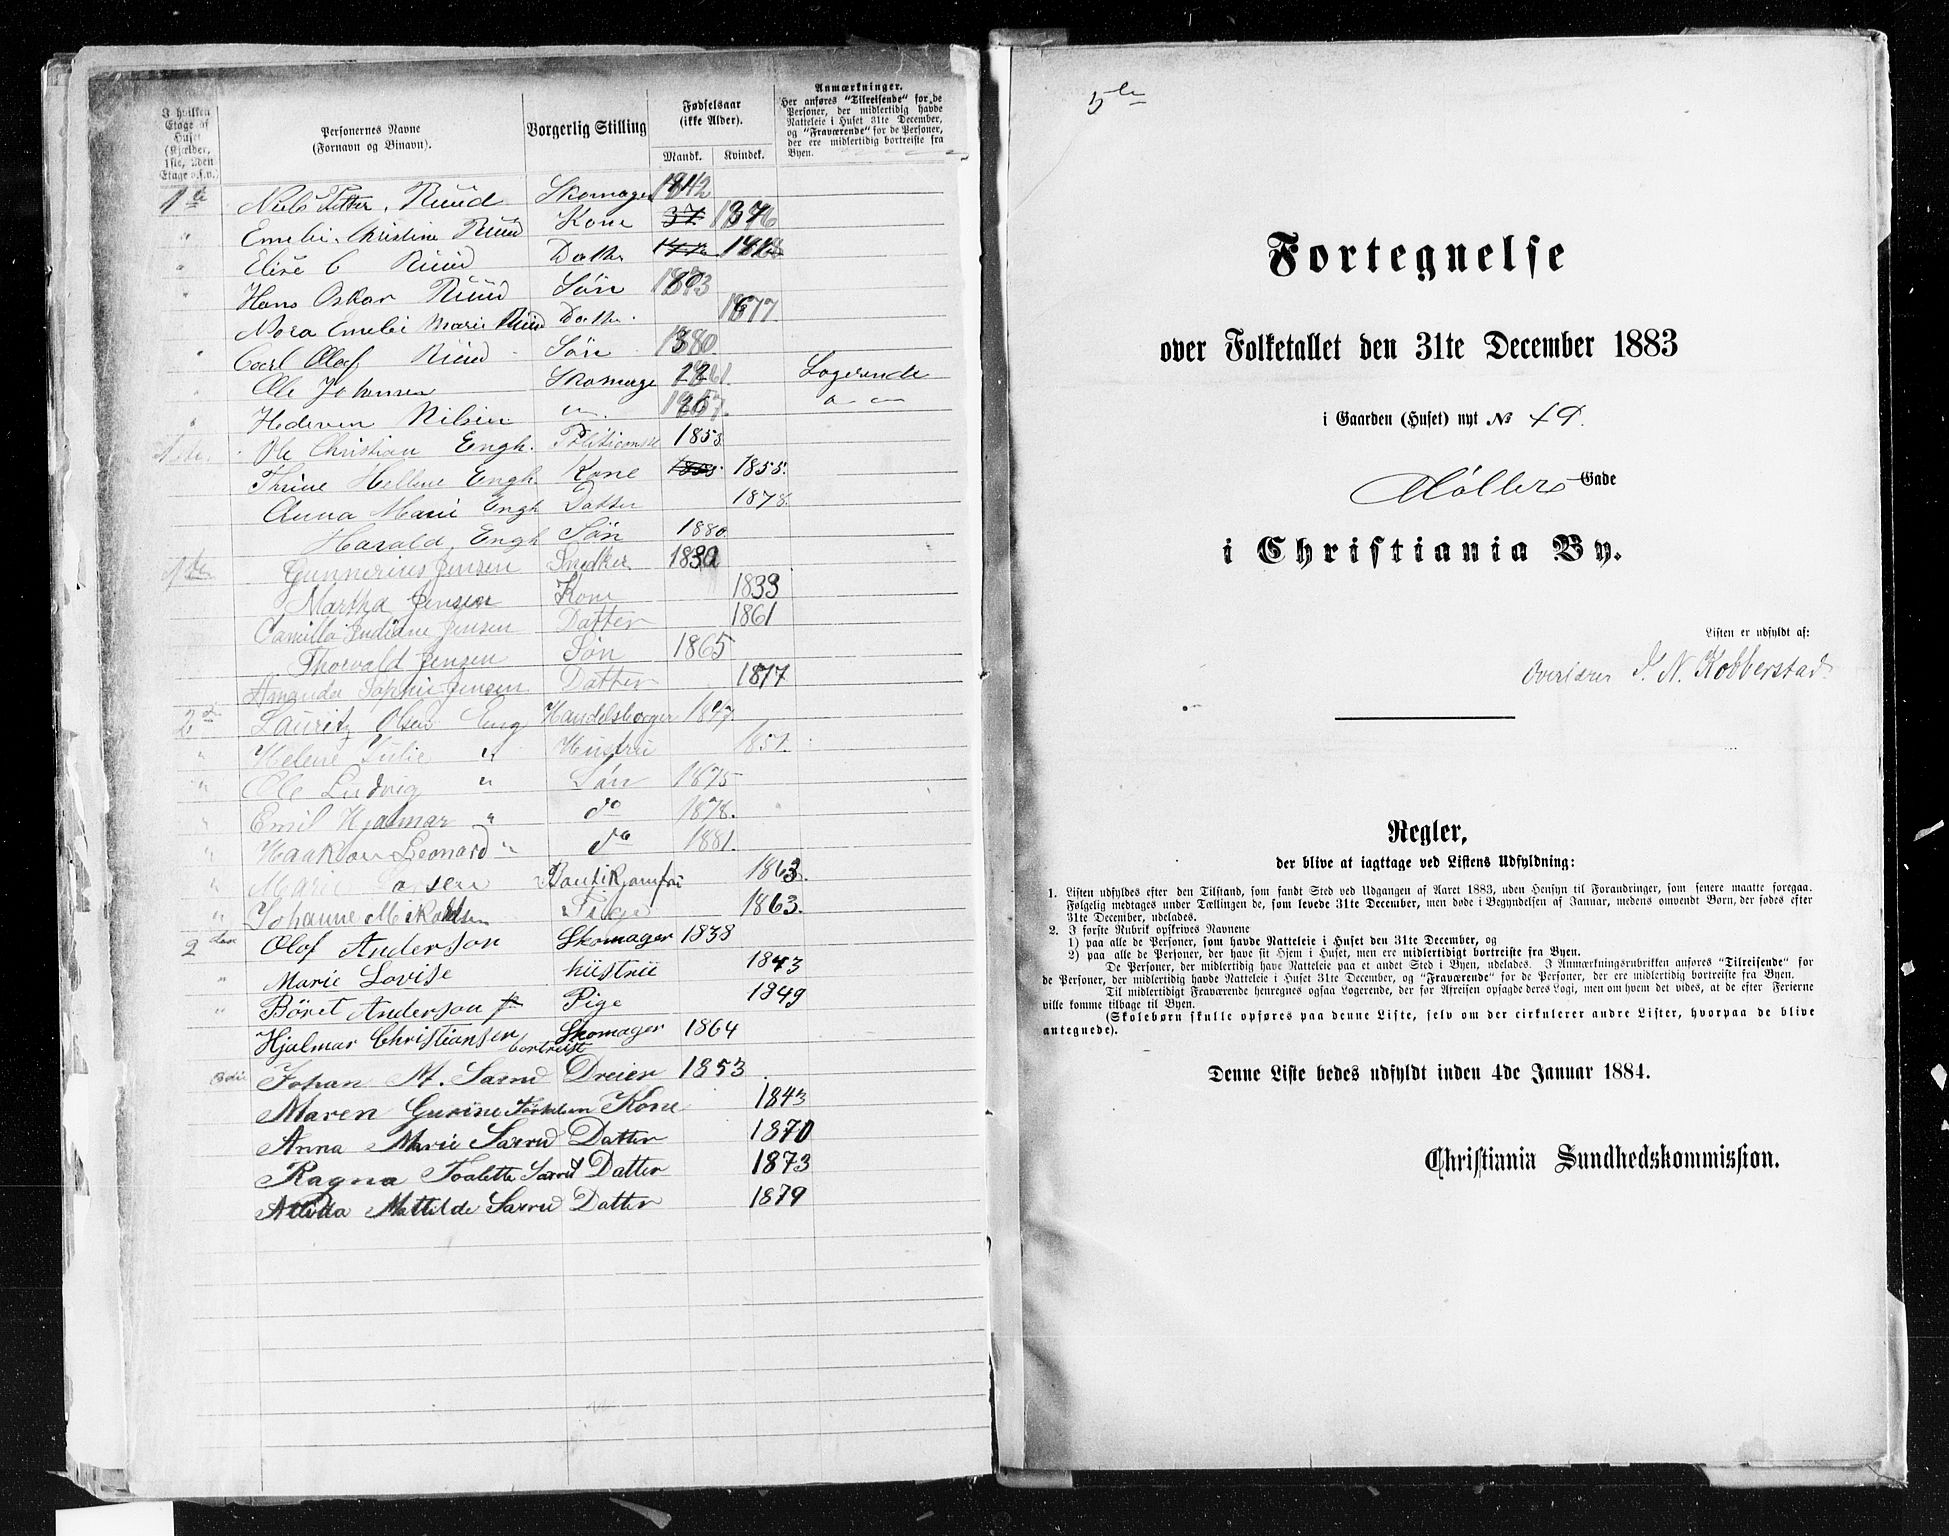 I hvilken
Etage af
Huset
(Kjælder,
1ste, 2den
Etage o.s.v.)
Personernes Navne
(Fornavn og Binavn).
Borgerlig Stilling
Fødselsaar
(ikke Alder).
Mandk. Kvindek.
Anmærkninger.
Her anføres "Tilreisende" for de
Personer, der midlertidig havde
Natteleie i Huset 31te December,
og "Fraværende" for de Personer,
der ere midlertidig bortreiste fra
Byen.
1te Niels Petter Ruud Skomager 1842
" Emelie Christine Ruud Kone
" Elise C Ruud Datter
" Hans Oskar Ruud Søn 1873
Nora Emelie Marie Ruud Datter 1877
" Carl Olaf Ruud Søn 1880
" Ole Johansen Skomager Logerende
" Nilsen
Ole Christian Engh. Politiconst 1858
Thrine Hellene Engh. Kone 1855 1855.
Anna Marie Engh Datter 1878.
Harald Engh Søn 1880
Gunnerius Jensen Snedker 1830
Martha Jensen Kone 1833
Camilla Indiane Jensen Datter 1861
Thorvald Jensen Søn 1865
Amanda Sophie Jensen Datter 1877
2d Lauritz Olsen Eng Handelsborger 1847.
" Helene Julie " Hustru 1851.
" Ole Ludvig " Søn 1875
" Emil Hjalmar " do 1878.
" Haakon Leonard " do 1881.
" Marie Larsen Boutikjomfru 1863.
" Johanne Mikalsen Pige 1863.
2den Olof Anderson Skomager 1838
" Marie Lovise hüstrü 1843
" Böret Anderson Pige 1849
Hjalmar Christiansen Skomager 1864
bortreist
3die Johan M. Sarrud Dreier 1853
Maren Gurine Torkelsen Kone 1843
Anna Marie Sarrud Datter 1870
Ragna Toalette Sarrud Datter 1873
Alida Mathilde Sarrud Datter 1879
5te
Fortegnelse
over Folketallet den 31te December 1883
i Gaarden (Huset) nyt № 49.
Møller Gade
i Christiania By.
Listen er udfyldt af:
Overlærer J. N. Kobberstad
Regler,
der blive at iagttage ved Listens Udfyldning:
1. Listen udfyldes efter den Tilstand, som fandt Sted ved Udgangen af Aaret 1883, uden Hensyn til Forandringer, som senere maatte foregaa.
Følgelig medtages under Tællingen de, som levede 31te December, men døde i Begyndelsen af Januar, medens omvendt Børn, der fødes efter
31te December, udelades.
2. I første Rubrik opskrives Navnene
1) paa alle de Personer, som havde Natteleie i Huset den 31te December, og
2) paa alle de Personer, der have sit Hjem i Huset, men ere midlertidigt bortreiste fra Byen.
De Personer, der midlertidig have Natteleie paa et andet Sted i Byen, udelades. I Anmærkningsrubrikken anføres "Tilreisende" for
de Personer, der midlertidig havde Natteleie i Huset 31te December, og "Fraværende" for de Personer, der ere midlertidig bortreiste fra Byen.
Til midlertidigt Fraværende henregnes ogsaa Logerende, der før Afreisen opsagde deres Logi, men om hvem det vides, at de efter Ferierne
ville komme tilbage til Byen.
(Skolebørn skulle opføres paa denne Liste, selv om der cirkulerer andre Lister, hvorpaa de blive
antegnede).
Denne Liste bedes udfyldt inden 4de Januar 1884.
Christiania Sundhedskommission.